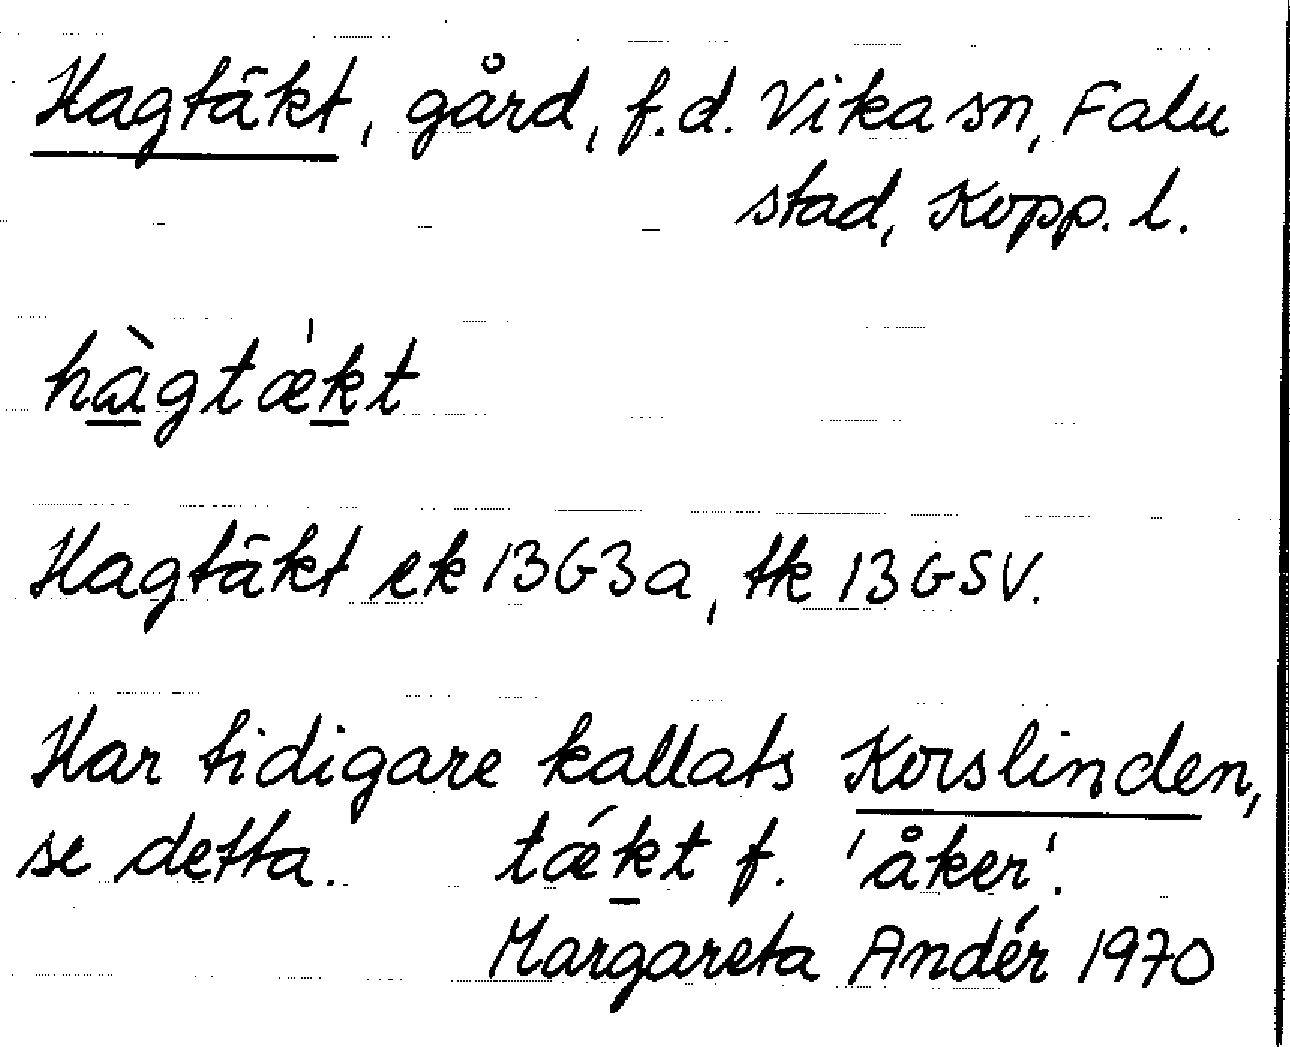 Hagtäkt, gård, f.d. Vika sn, Falu
stad, Kopp. l.
hàgtækt
Hagtäkt ek 13G3a, tk 13GSV.
Har tidigare kallats Korslinden,
se detta. tǽkt f. 'åker'.
Margareta Andér 1970